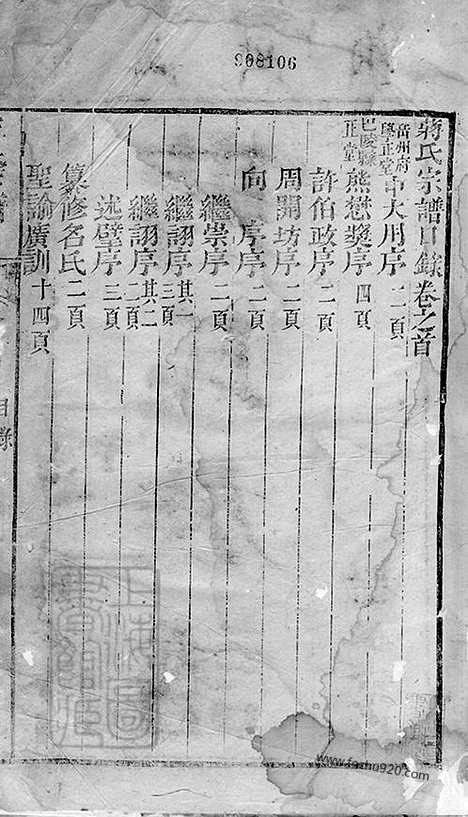 908106
蔣氏宗譜目錄卷之首
黃州府學正堂申大用序 二頁
巴陵縣正堂熊懋奬序 四頁
許伯政序 二頁
周開坊序 二頁
向 序序 二頁
繼崇序 二頁
繼詡序其一 三頁
繼詡序其二 二頁
述壁序 三頁
纂修名氏 二頁
聖諭廣訓 十四頁
目錄
www.fashu920.com